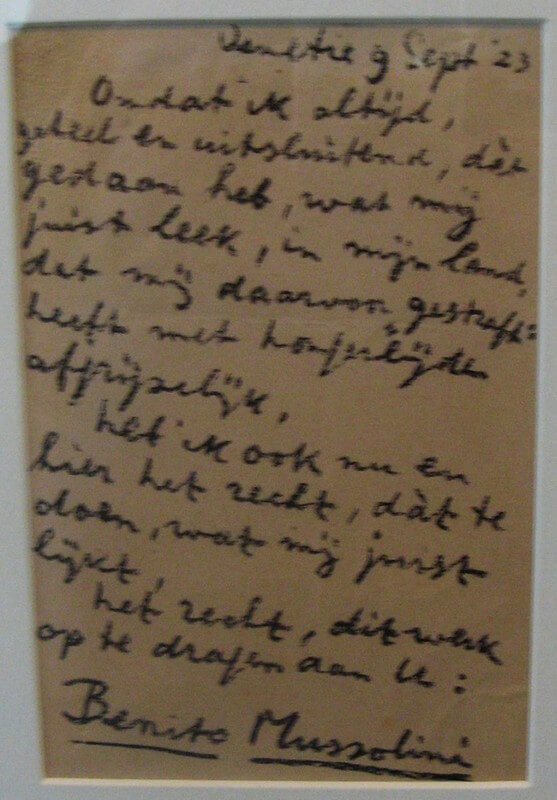 Venetie 9 Sept '23
Omdat ik altijd,
geheel en uitsluitend, dàt
gedaan heb, wat mij
juist leek, in mijn land,
dat mij daarvoor gestraft
heeft met hongerlijden
afgrijselijk,
heb ik ook nu en
hier het recht, dàt te
doen, wat mij juist
lijkt,
het recht, dit werk
op te dragen aan U:
Benito Mussolini